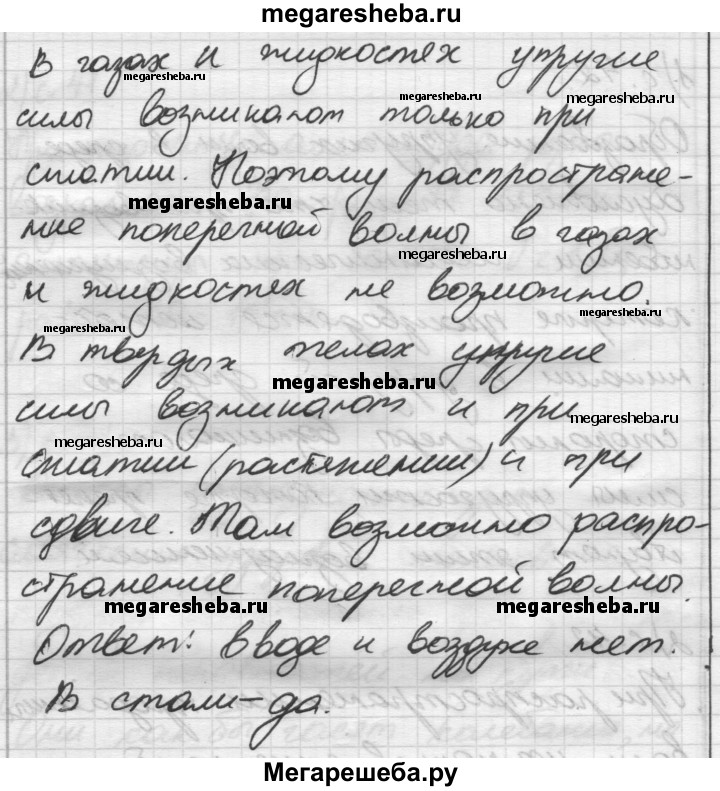 megaresheba.ru
В газах и жидкостях упругие
megaresheba.ru
megaresheba.ru
megaresheba.ru
силы возникают только при
сжатии. Поэтому распростране-
megaresheba.ru
megaresheba.ru
ние поперечной волны в газах
megaresheba.ru
и жидкостях не возможно.
megaresheba.ru
В твердых телах упругие
megaresheba.ru
силы возникают и при
megaresheba.ru
megaresheba.ru
сжатии (растяжении) и при
сдвиге. Там возможно распро-
странение поперечной волны.
megaresheba.ru
megaresheba.ru
Ответ: в воде и воздухе нет.
В стали-да.
Мегарешеба.ру